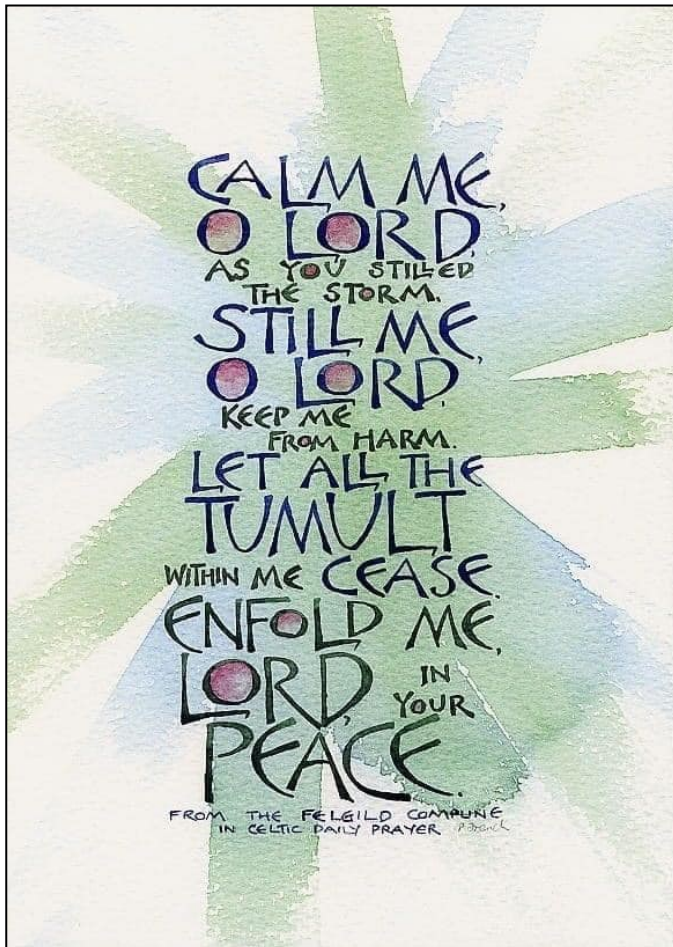 CALM ME,
O LORD,
AS YOU STILLED
THE STORM.
STILL ME,
O LORD,
KEEP ME
FROM HARM.
LET ALL THE
TUMULT
WITHIN ME CEASE.
ENFOLD ME,
LORD, IN
YOUR
PEACE.
FROM THE FELGILD COMPLINE
IN CELTIC DAILY PRAYER